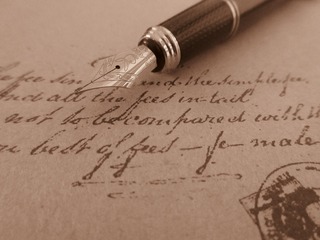 and the simple fee,
And all the fees in tail
not to be compared with
best of fees — fe male